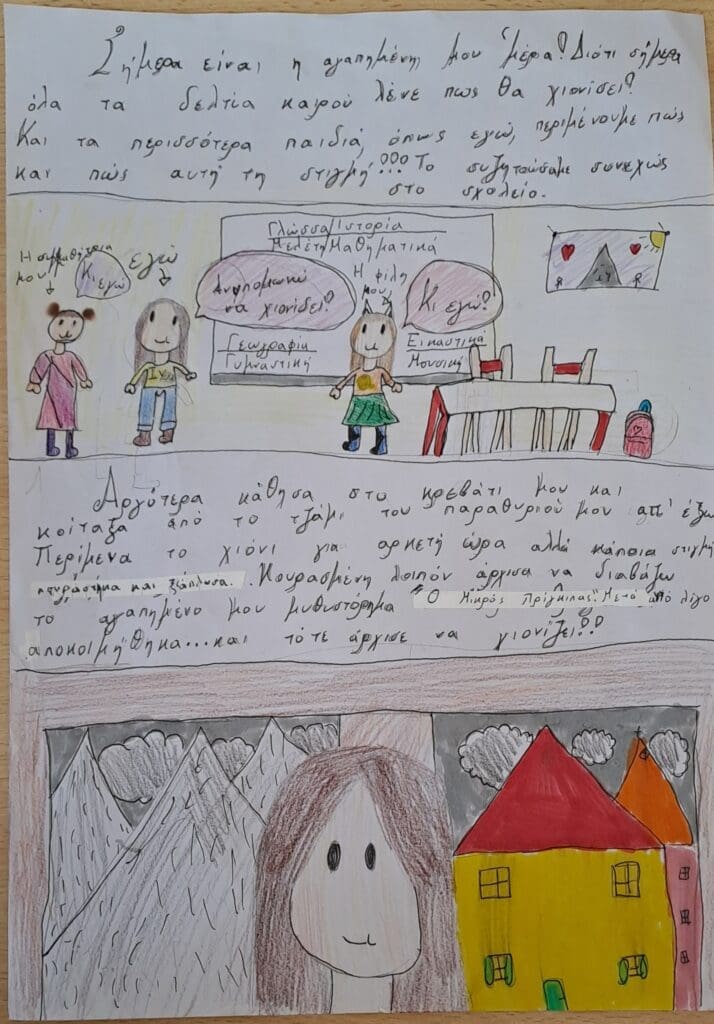 Σήμερα είναι η αγαπημένη μου μέρα! Διότι σήμερα
όλα τα δελτία καιρού λένε πως θα χιονίσει!
Και τα περισσότερα παιδιά, όπως εγώ, περιμένουμε πώς
και πώς αυτή τη στιγμή!!! Το συζητούσαμε συνεχώς
στο σχολείο.
Γλώσσα/Ιστορία
Μελέτη Μαθηματικά
Η συμμαθήτρια
μου
Κι εγώ
εγώ
Ανυπομονώ
να χιονίσει!
Η φίλη
μου
Κι εγώ!
Γεωγραφία
Γυμναστική
Εικαστικά
Μουσική
Αργότερα κάθησα στο κρεβάτι μου και
κοίταξα από το τζάμι του παραθυριού μου απ' έξω
Περίμενα το χιόνι για αρκετή ώρα αλλά κάποια στιγμή
κουράστηκα και ξάπλωσα. Κουρασμένη λοιπόν άρχισα να διαβάζω
το αγαπημένο μου μυθιστόρημα "Ο Μικρός Πρίγκιπας". Μετά από λίγο
αποκοιμήθηκα...και τότε άρχισε να χιονίζει!!